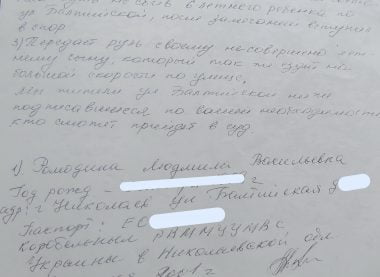 не сбить 8 летнего ребенка по
ул Балтийской, после замечания вступил
в спор.
3) Передает руль своему несовершеннолет-
нему сыну, который так же ездит на
большой скорости по улице.
Мы жители ул Балтийской ниже
подписавшиеся по вашей необходимости
кто сможет прийдет в суд.
1) Людмила Васильевна
Год рожд -
адр: г Николаев ул Балтийская д
Паспорт: ЕО
Корабельным РАММУУМВС
Украины в Николаевской обл.